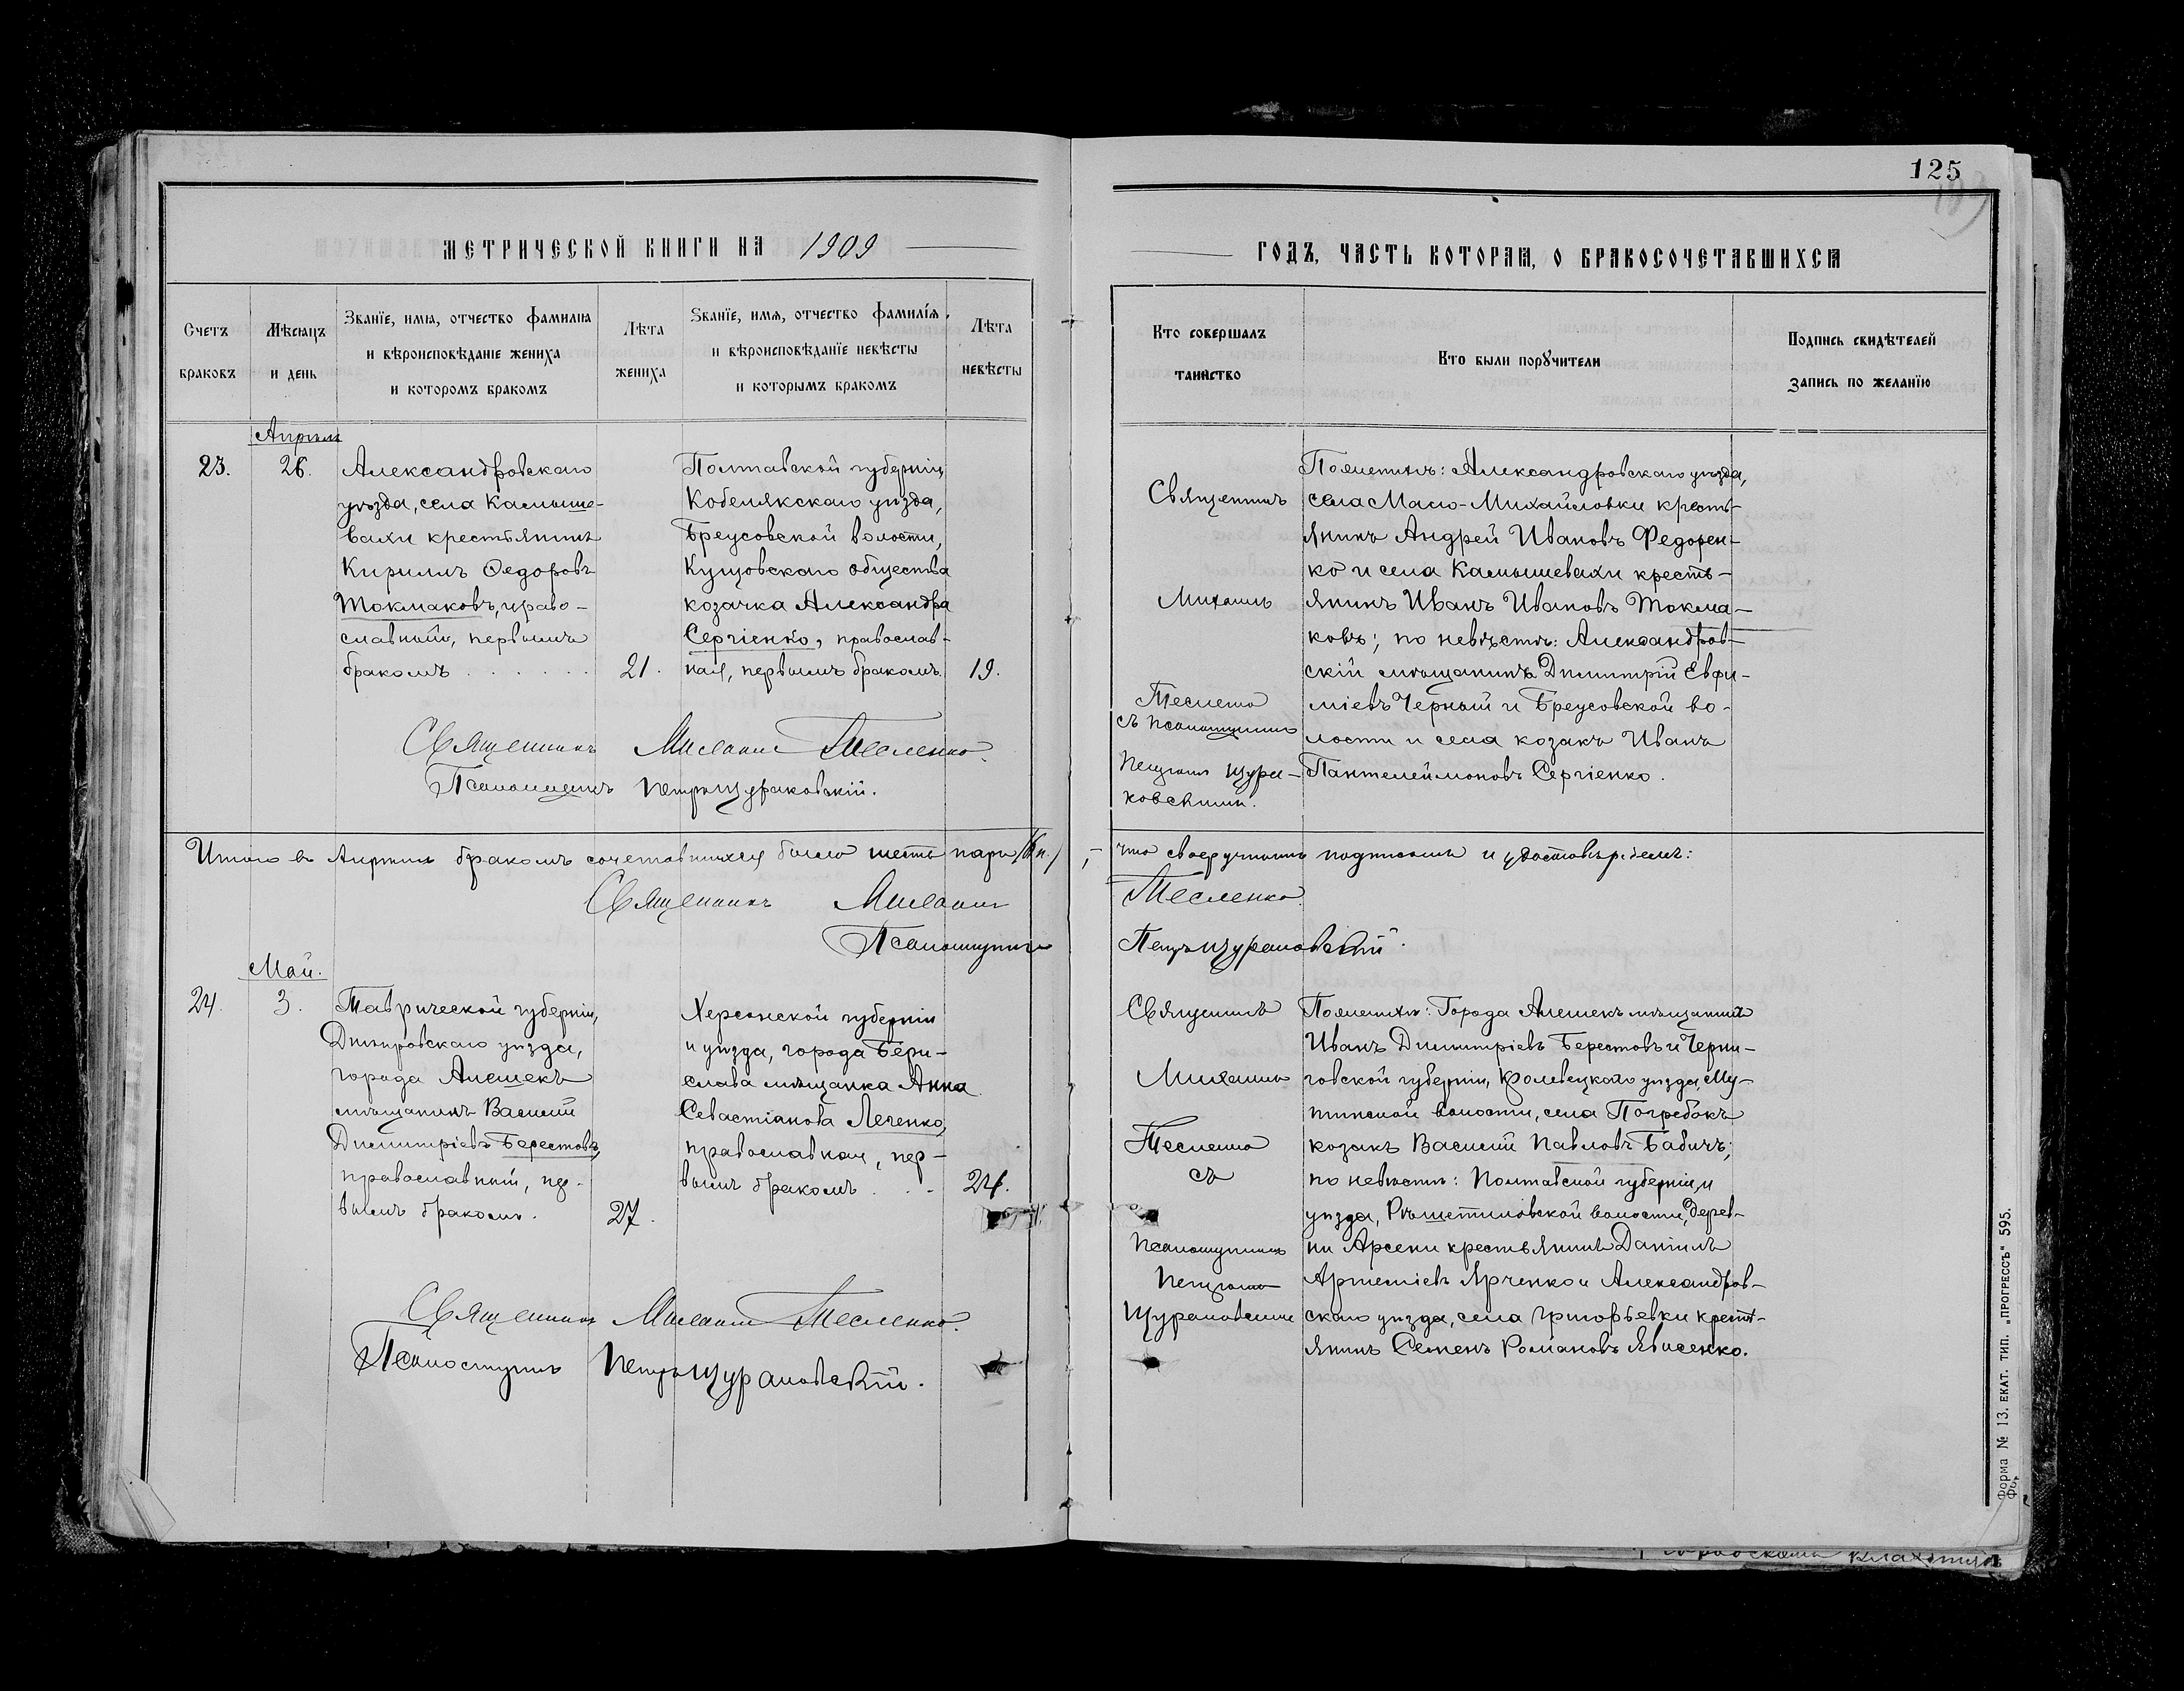 125
МЕТРИЧЕСКОЙ КНИГИ НА 1909
ГОДЪ, ЧАСТЬ ВТОРАЯ, О БРАКОСОЧЕТАВШИХСЯ
Счетъ
браковъ
Мѣсяцъ
и день
Званіе, имя, отчество фамилия
и вѣроисповѣданіе жениха
и которомъ бракомъ
Лѣта
жениха
Званіе, имя, отчество фамилія,
и вѣроисповѣданіе невѣсты
и которымъ бракомъ
Лѣта
невѣсты
Кто совершалъ
таинство
Кто были поручители
Подпись свидѣтелей
запись по желанію
Апрѣль
23.
26.
Александровскаго
уѣзда, села Камыше-
вахи крестьянинъ
Кириллъ Ѳедоровъ
Токмаковъ, право-
славный, первымъ
бракомъ
21.
Полтавской губерніи,
Кобелякскаго уѣзда,
Бреусовской волости,
общества
козачка Александра
Сергіенко, православ-
ная, первымъ бракомъ.
19.
Священникъ
Михаилъ
Тесленко
съ псаломщикомъ
Петромъ Щура-
ковскимъ.
По женихѣ: Александровскаго уѣзда,
села Мало-Михайловки кресть-
янинъ Андрей Ивановъ Федорен-
ко и села Камышевахи кресть-
янинъ Иванъ Ивановъ Токма-
ковъ; по невѣстѣ: Александров-
скій мѣщанинъ Димитрій Евфи-
міевъ Черный и Бреусовской во-
лости и села козакъ Иванъ
Пантелеймоновъ Сергіенко.
Священникъ Михаилъ Тесленко.
Псаломщикъ Петръ Щураковскій.
Итого въ Апрѣлѣ бракомъ сочетавшихся было шесть паръ /6 п./, -
что своеручнымъ подписомъ и удостовѣряемъ:
Священникъ Михаилъ Тесленко.
Псаломщикъ Петръ Щураковскій.
Май.
24.
3.
Таврической губерніи,
Днѣпровскаго уѣзда,
города Алешекъ
мѣщанинъ Василій
Димитріевъ Берестовъ,
православный, пер-
вымъ бракомъ.
27.
Херсонской губерніи
и уѣзда, города Бери-
слава мѣщанка Анна
Севастіанова Леченко,
православная, пер-
вымъ бракомъ
24.
Священникъ
Михаилъ
Тесленко
съ
псаломщикомъ
Петромъ
Щураковскимъ
По женихѣ: Города Алешекъ мѣщанинъ
Иванъ Димитріевъ Берестовъ и Черни-
говской губерніи, Кролевецкаго уѣзда, Му-
тинской волости, села Погребокъ
козакъ Василій Павловъ Бабичъ;
по невѣстѣ: Полтавской губерніи, и
уѣзда, Рѣшетиловской волости, дерев-
ни Арсени крестьянинъ Даніилъ
Артеміевъ Ярченко и Александров-
скаго уѣзда, села Григорьевки кресть-
янинъ Семенъ Романовъ Явисенко.
Священникъ Михаилъ Тесленко.
Псаломщикъ Петръ Щураковскій.
Форма № 13. ЕКАТ. ТИП. „ПРОГРЕССЪ" 595.